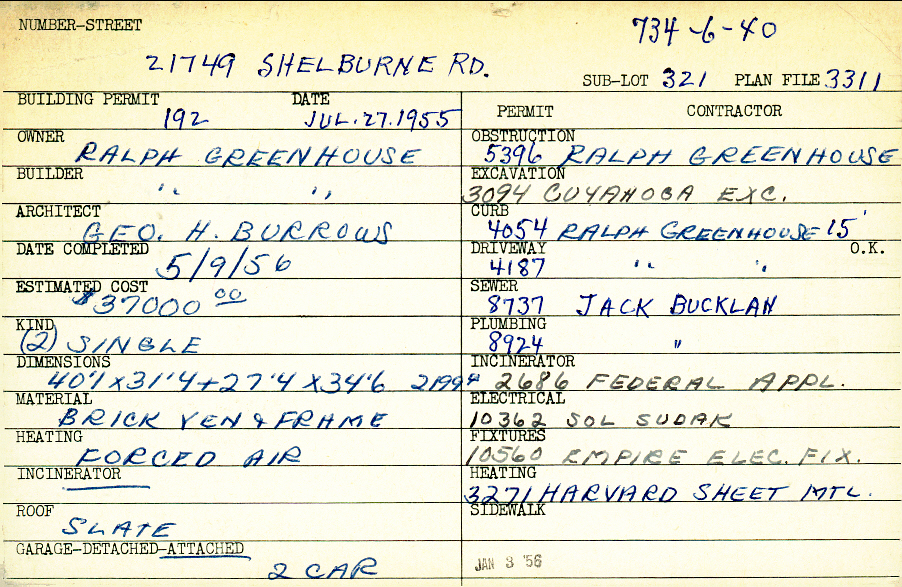 NUMBER-STREET 734-6-40
21749 SHELBURNE RD.
SUB-LOT 321 PLAN FILE 3311
BUILDING PERMIT DATE
192 JUL.27.1955
OWNER
RALPH GREENHOUSE
BUILDER
" "
ARCHITECT
GEO. H. BURROWS
DATE COMPLETED
5/9/56
ESTIMATED COST
$37000 00
KIND
(2) SINGLE
DIMENSIONS
40'1 X 31'4 + 27'4 X 34'6 21994
MATERIAL
BRICK VEN & FRAME
HEATING
FORCED AIR
INCINERATOR
ROOF
SLATE
GARAGE-DETACHED-ATTACHED
2 CAR
PERMIT CONTRACTOR
OBSTRUCTION
5396 RALPH GREENHOUSE
EXCAVATION
3094 CUYAHOGA EXC.
CURB
4054 RALPH GREENHOUSE 15'
DRIVEWAY O.K.
4187 " "
SEWER
8737 JACK BUCKLAN
PLUMBING
8924 "
INCINERATOR
2686 FEDERAL APPL.
ELECTRICAL
10362 SOL SUDAK
FIXTURES
10560 EMPIRE ELEC. FIX.
HEATING
3271 HARVARD SHEET MTL.
SIDEWALK
JAN 3 '56